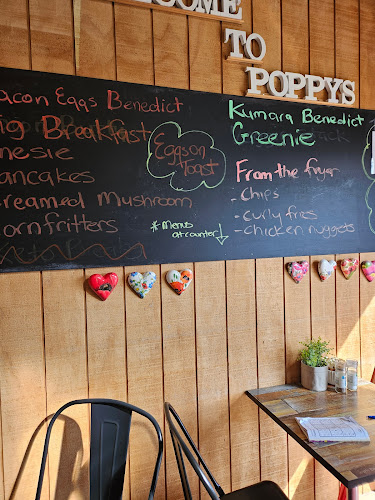 COME
TO
POPPYS
acon Eggs Benedict
Big Breakfast
nesie
ancakes
reamed Mushroom
ornfritters
Eggs on
Toast
* Menus
at counter
Kumara Benedict
Greenie
From the fryer
- Chips
- curly fries
- chicken nuggets